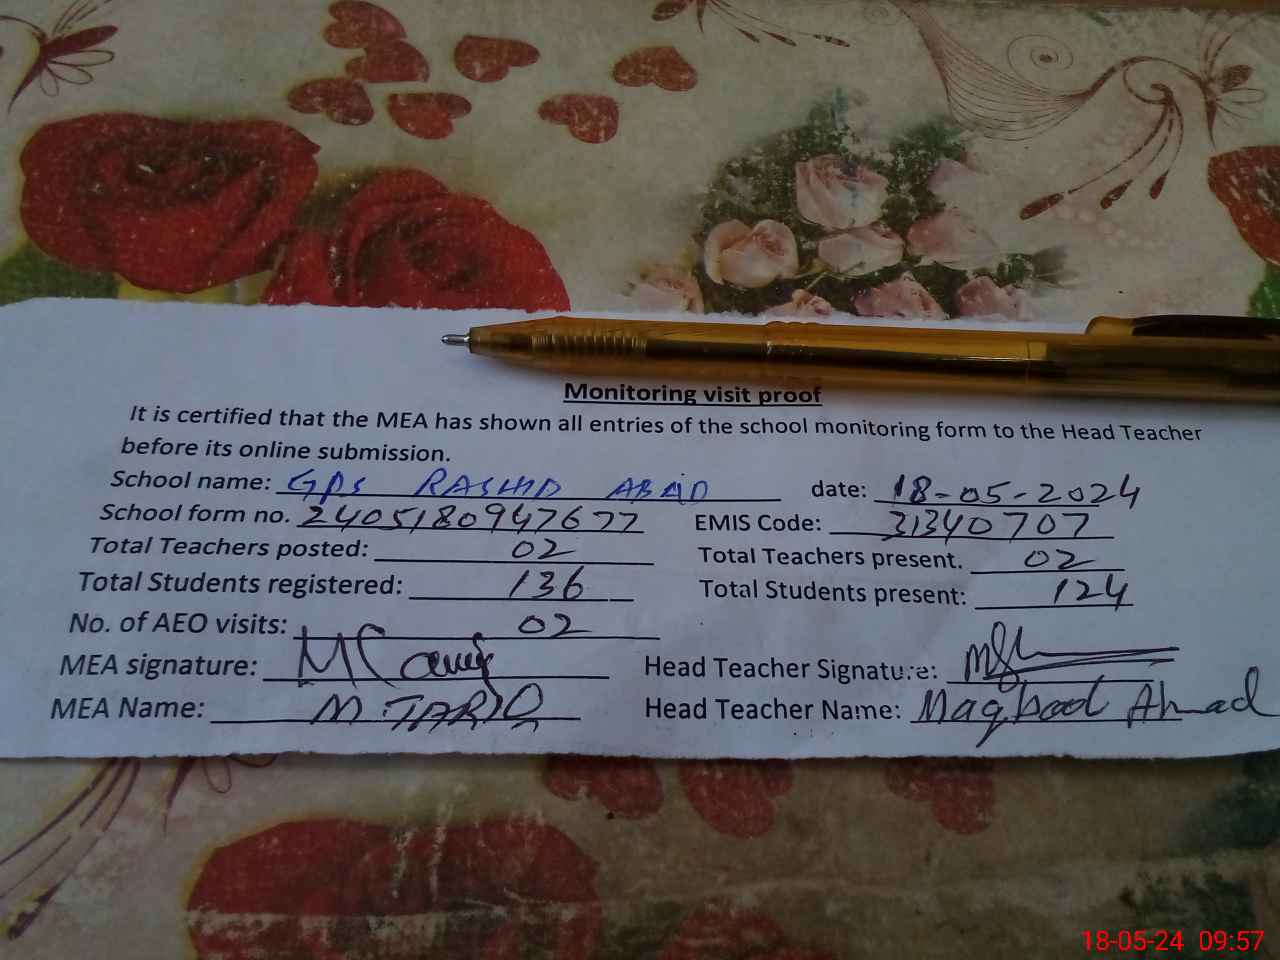 Monitoring visit proof
It is certified that the MEA has shown all entries of the school monitoring form to the Head Teacher
before its online submission.
School name: GPS RASHID ABAD date: 18-05-2024
School form no. 2405180947677 EMIS Code: 31340707
Total Teachers posted: 02 Total Teachers present. 02
Total Students registered: 136 Total Students present: 124
No. of AEO visits: 02
MEA signature: Head Teacher Signature:
MEA Name: M TARIQ Head Teacher Name: Maqbool Ahmad
18-05-24 09:57